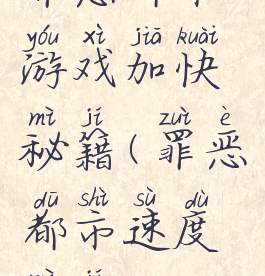 yóu xì jiā kuài
游戏加快
mì jí zuì è
秘籍(罪恶
dū shì sù dù
都市速度